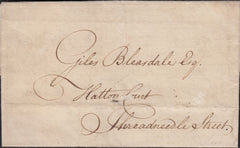 Giles Bleasdale Esq.
Hatton Court
Threadneedle Street.